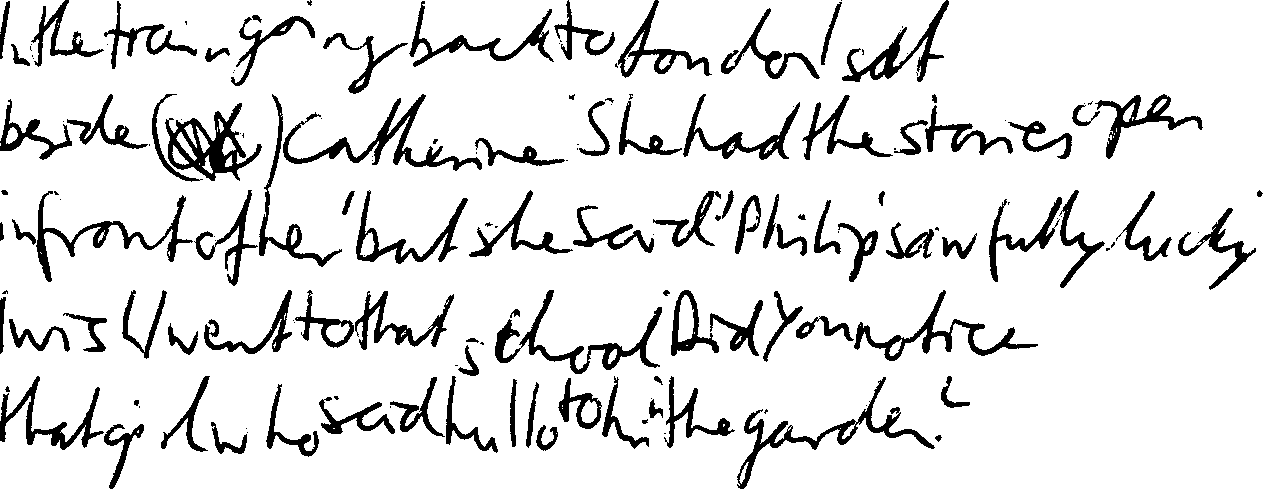 In the train going back to London I sat
beside () Catherine She had the stories open
in front of her, but she said, "Philip's awfully lucky
I wish I went to that school. Did you notice
that girl who said hullo to him in the garden?